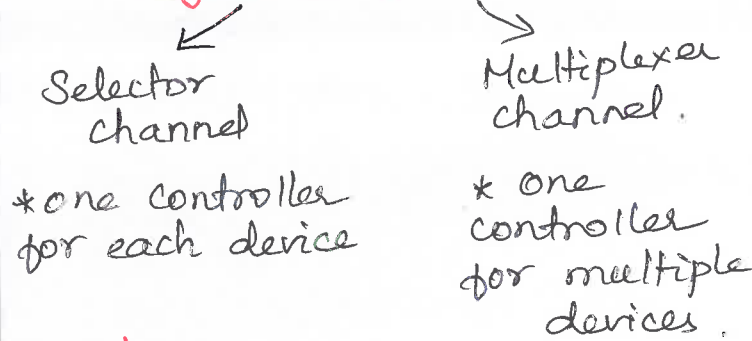 Selector
channel
*one controller
for each device
Multiplexer
channel.
* one
controller
for multiple
devices.